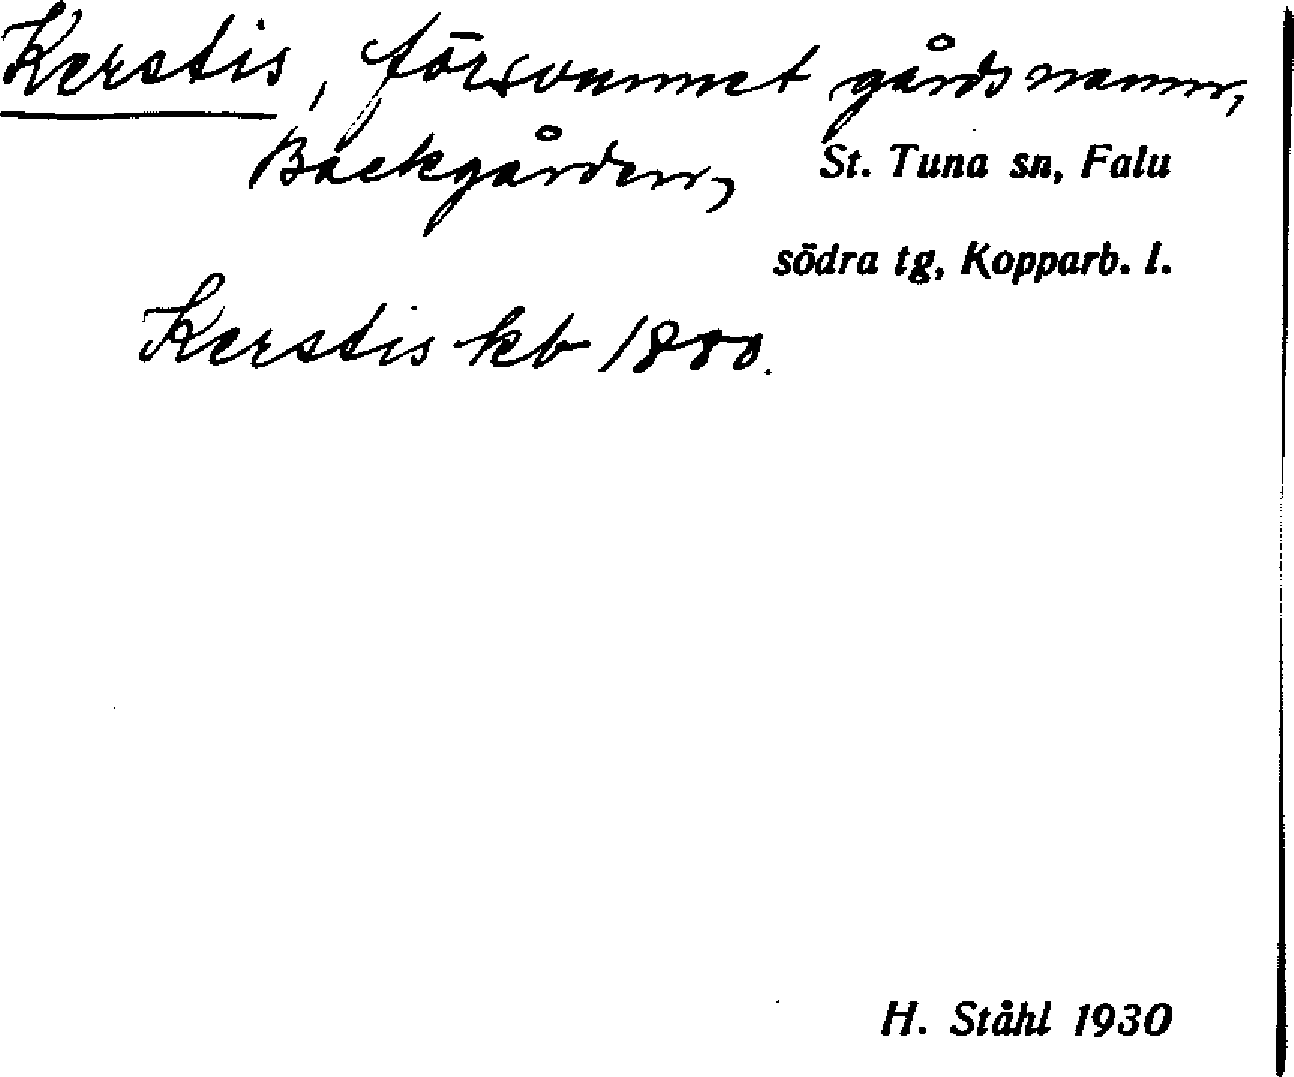 Kerstis, försvunnet gårdsnamn,
Backgården, St. Tuna sn, Falu
södra tg, Kopparb. l.
Kerstis kb 1800.
H. Ståhl 1930